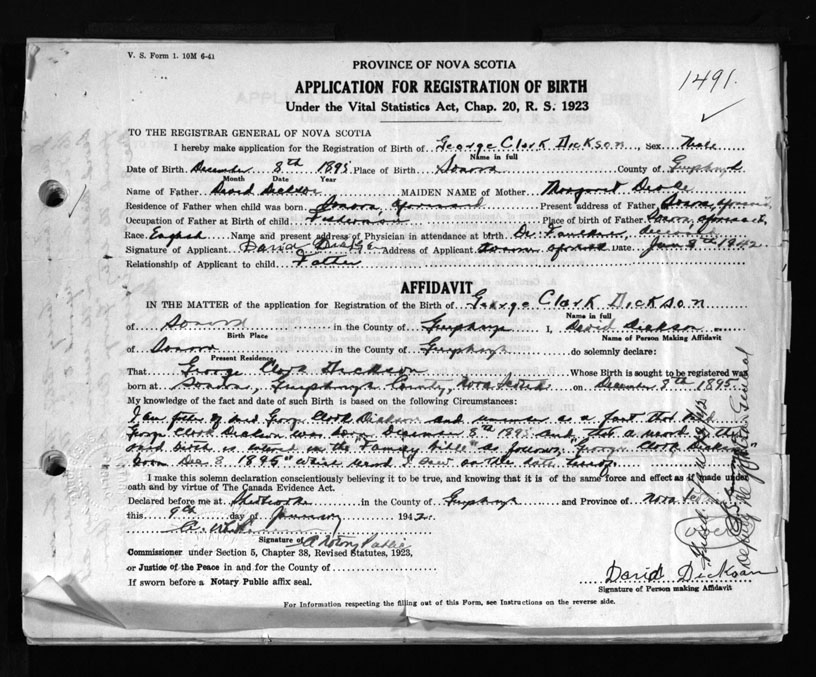 V. S. Form 1. 10M 6-41
PROVINCE OF NOVA SCOTIA
1491.
APPLICATION FOR REGISTRATION OF BIRTH
Under the Vital Statistics Act, Chap. 20, R. S. 1923
TO THE REGISTRAR GENERAL OF NOVA SCOTIA
I hereby make application for the Registration of Birth of George Clark Dickson, Sex Male
Name in full
Date of Birth December 8th 1895 Place of Birth Sonora County of
Month Date Year
Name of Father David Dickson MAIDEN NAME of Mother Margaret
Residence of Father when child was born Sonora, Present address of Father Sonora,
Occupation of Father at Birth of child Fisherman Place of birth of Father Sonora,
Race English Name and present address of Physician in attendance at birth Dr. Faulkner, deceased
Signature of Applicant David Address of Applicant Sonora Date Jan 8th 1942
Relationship of Applicant to child Father
AFFIDAVIT
IN THE MATTER of the application for Registration of the Birth of George Clark Dickson
Name in full
of Sonora in the County of I, David Dickson
Birth Place Name of Person Making Affidavit
of Sonora in the County of do solemnly declare:
Present Residence
That George Clark Dickson Whose Birth is sought to be registered was
born at Sonora, County, Nova Scotia on December 8th 1895.
My knowledge of the fact and date of such Birth is based on the following Circumstances:
I am father of said George Clark Dickson and remember as a fact that said
George Clark Dickson was born December 8th 1895 and that a record of the
said birth is entered in the "Family Bible" as follows: "George Clark Dickson
born Dec 8 1895" which record I on the date
I make this solemn declaration conscientiously believing it to be true, and knowing that it is of the same force and effect as if made under
oath and by virtue of The Canada Evidence Act.
Declared before me at Sherbrooke in the County of and Province of Nova Scotia
this 9th day of January 1942.
Signature of A Notary Public
Commissioner under Section 5, Chapter 38, Revised Statutes, 1923,
or Justice of the Peace in and for the County of
If sworn before a Notary Public affix seal.
David Dickson
Signature of Person making Affidavit
For Information respecting the filling out of this Form, see Instructions on the reverse side.
Deputy Registrar General